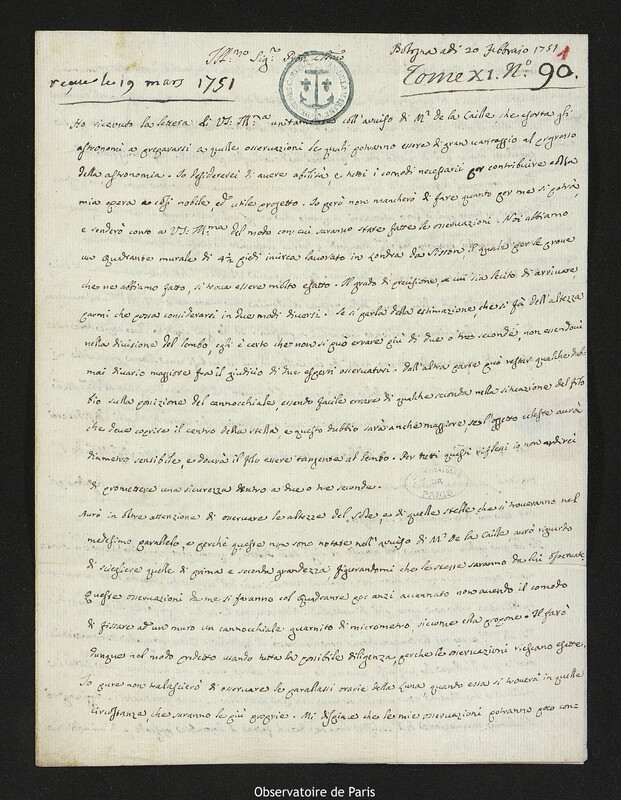 Bologna adi 20 Febbraio 1751
Ill.mo Sig.r Pron.
reçue le 19 mars 1751
Tome XI. N.o 90.
1
Ho ricevuto la lettera di VS: Ill.ma unitamente coll'avviso di M.r de la Caille che esorta gli
astronomi a prepararsi a quelle osservazioni le quali potranno essere di gran vantaggio al progresso
della astronomia. Io desidererei di avere abilità, e tutti i comodi necessarii per contribuire coll'
mia opera a così nobile, ed utile progetto. Io però non mancherò di fare quanto per me si potrà,
e renderò conto a VS: Ill.ma del modo con cui saranno state fatte le osservazioni. Noi abbiamo
un Quadrante murale di 4½ piedi in circa lavorato in Londra da Sisson il quale per le prove
che ne abbiamo fatto, si trova essere molto esatto. Il grado di precisione, a cui sia lecito di arrivare
parmi che possa considerarsi in due modi diversi. Se si parla della estimazione che si fà dell'altezza
nella divisione del lembo, egli è certo che non si può errare più di due o tre seconde, non essendovi
mai divario maggiore fra il giudicio di due esperti osservatori. Dall'altra parte può restar qualche dub-
bio sulla posizione del cannocchiale, essendo facile errare di qualche seconda nella situazione del filo
che deve coprire il centro della stella, e questo dubbio sarà anche maggiore se l'oggetto celeste avrà
diametro sensibile, e dovrà il filo essere tangente al lembo. Per tutti questi riflessi io non ardirei
di promettere una sicurezza dentro a due o tre seconde.
OBSERVATOIRE DE PARIS
Avrò in oltre attenzione di osservare le altezze del Sole, e di quelle stelle che si troveranno nel
medesimo parallelo, e perchè queste non sono notate nell'avviso di M.r De la Caille avrò riguardo
di scegliere quelle di prima e seconda grandezza figurandomi che le stesse saranno da lui osservate.
Queste osservazioni da me si faranno col Quadrante poc'anzi accennato non avendo il comodo
di fissare ad un muro un cannocchiale guarnito di micrometro, siccome ella propone. Il farò
dunque nel modo predetto usando tutta la possibile diligenza, perche le osservazioni riescano esatte.
Io pure non tralascierò di osservare le parallassi orarie della Luna, quanto essa si troverà in quelle
circostanze che saranno le più proprie. Mi dispiace che le mie osservazioni potranno poco con-
Observatoire de Paris